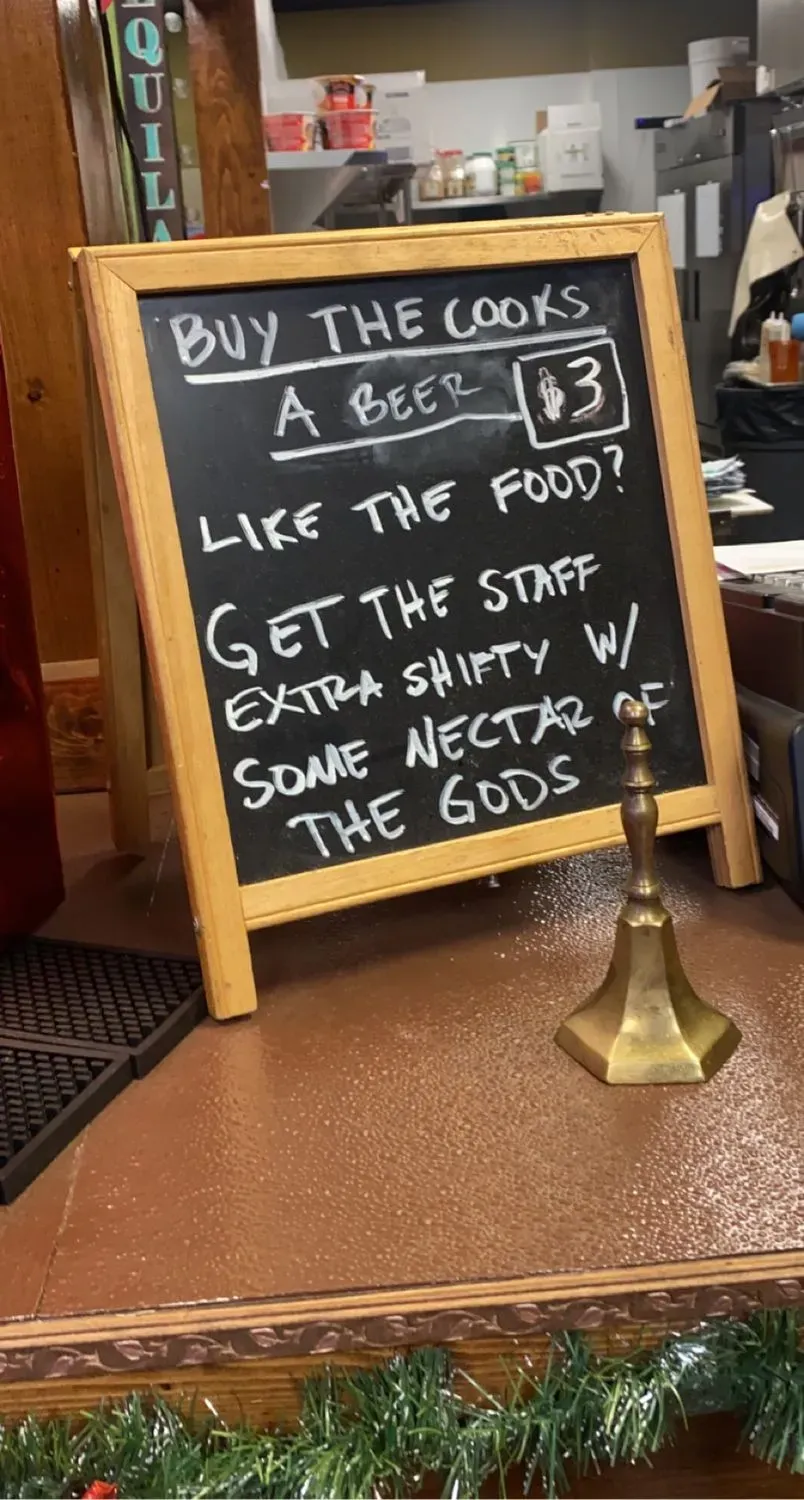 EQUILA
BUY THE COOKS
A BEER $3
LIKE THE FOOD?
GET THE STAFF
EXTRA SHIFTY W/
SOME NECTAR OF
THE GODS